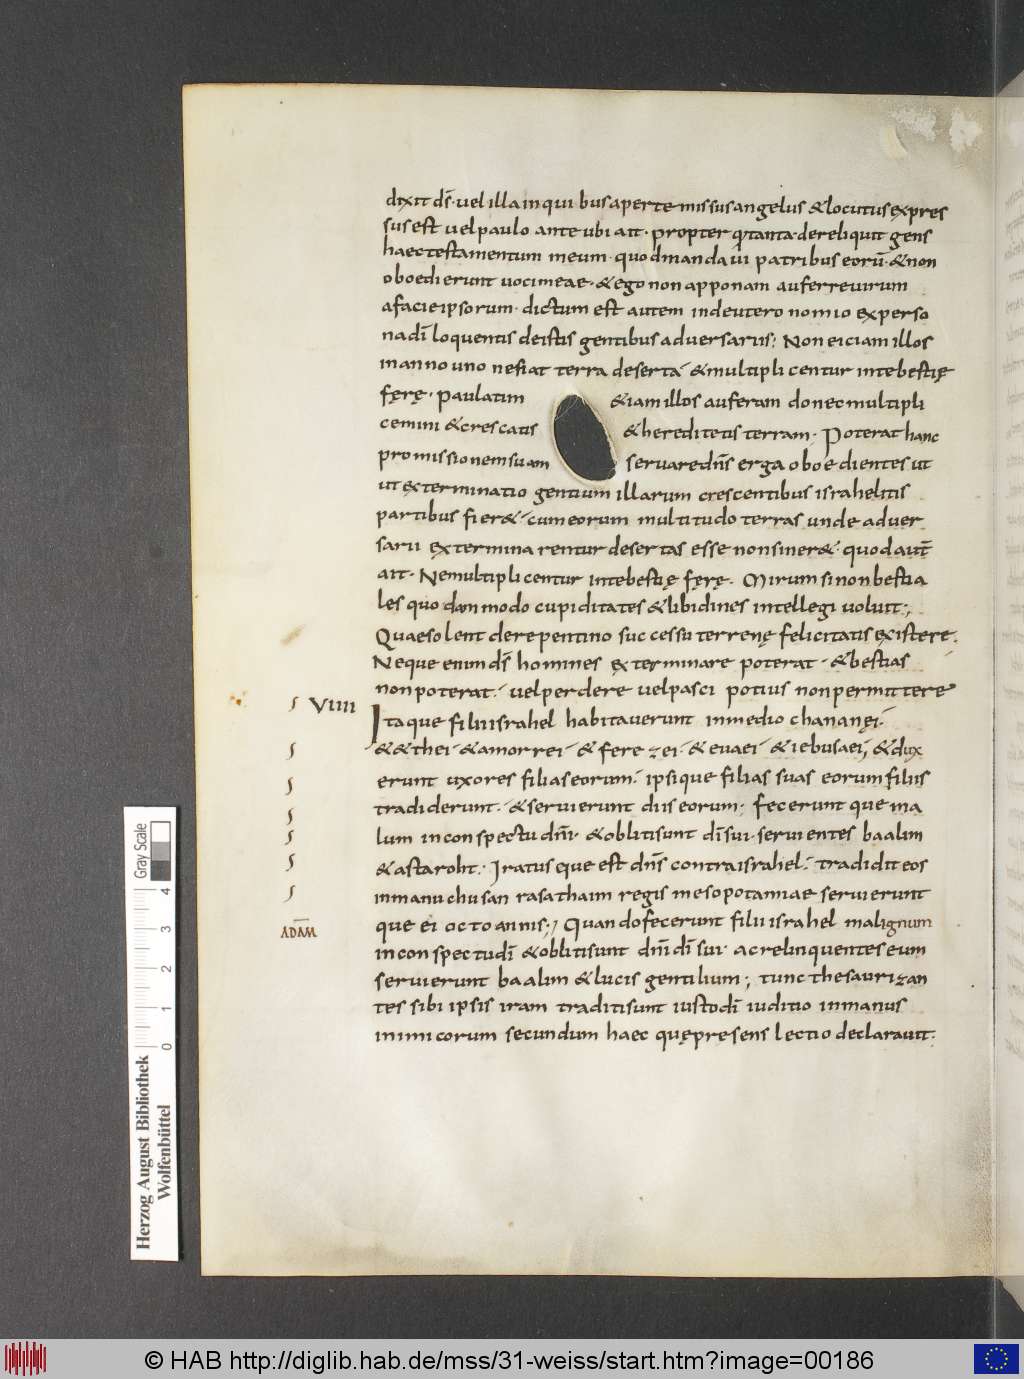 dixit d̄s· uel illa in quibus aperte missus angelus & locutus expres
sus est uel paulo ante ubi ait· propter q'tanta· dereliquit gens
haec testamentum meum· quod mandaui patribus eorū· & non
oboedierunt uoci meae· & ego non apponam auferre uirum
a facie ipsorum· dictum est autem in deuteronomio ex perso
na dī loquentis de istis gentibus aduersariis; Non eiciam illos
in anno uno ne fiat terra deserta & multiplicentur in te bestię
fęrę· paulatim & iam illos auferam donec multipli
cemini & crescatis & hereditetis terram· Poterat hanc
promissionem suam seruare dn̄s erga oboedientes ut
ut exterminatio gentium illarum crescentibus israhelitis
partibus fier&· cum eorum multitudo terras unde aduer
sarii exterminarentur desertas esse non siner&· quod aūt
ait· Ne multiplicentur in te bestię fęrę· Mirum si non bestia
les quodammodo cupiditates & libidines intellegi uoluit;
Quae solent de repentino successu terrenę felicitatis existere·
Neque enim d̄s homines exterminare poterat· & bestias
non poterat· uel perdere uel pasci potius non permittere
VIIII Itaque filii israhel habitauerunt in medio chananęi·
& &thei· & amorrei· & ferezei· & euaei· & iebusaei; & dux
erunt uxores filias eorum· ipsique filias suas eorum filiis
tradiderunt· & seruierunt diis eorum· feceruntque ma
lum in conspectu dn̄i· & obliti sunt dī sui· seruientes baalim
& astaroht· Iratus eque est dn̄s contra israhel· tradidit eos
in manu chusan rasathaim regis mesopotamiae seruierunt
que ei octo annis; Quando fecerunt filii israhel malignum
ADĀM
in conspectu dī & obliti sunt dn̄i dī sui· ac relinquentes eum
seruierunt baalim & lucis gentilium; tunc thesaurizan
tes sibi ipsis iram traditi sunt iusto dī iuditio in manus
inimicorum secundum haec quę presens lectio declarauit·
Herzog August Bibliothek
Wolfenbüttel
0 1 2 3 4
Gray Scale
© HAB http://diglib.hab.de/mss/31-weiss/start.htm?image=00186